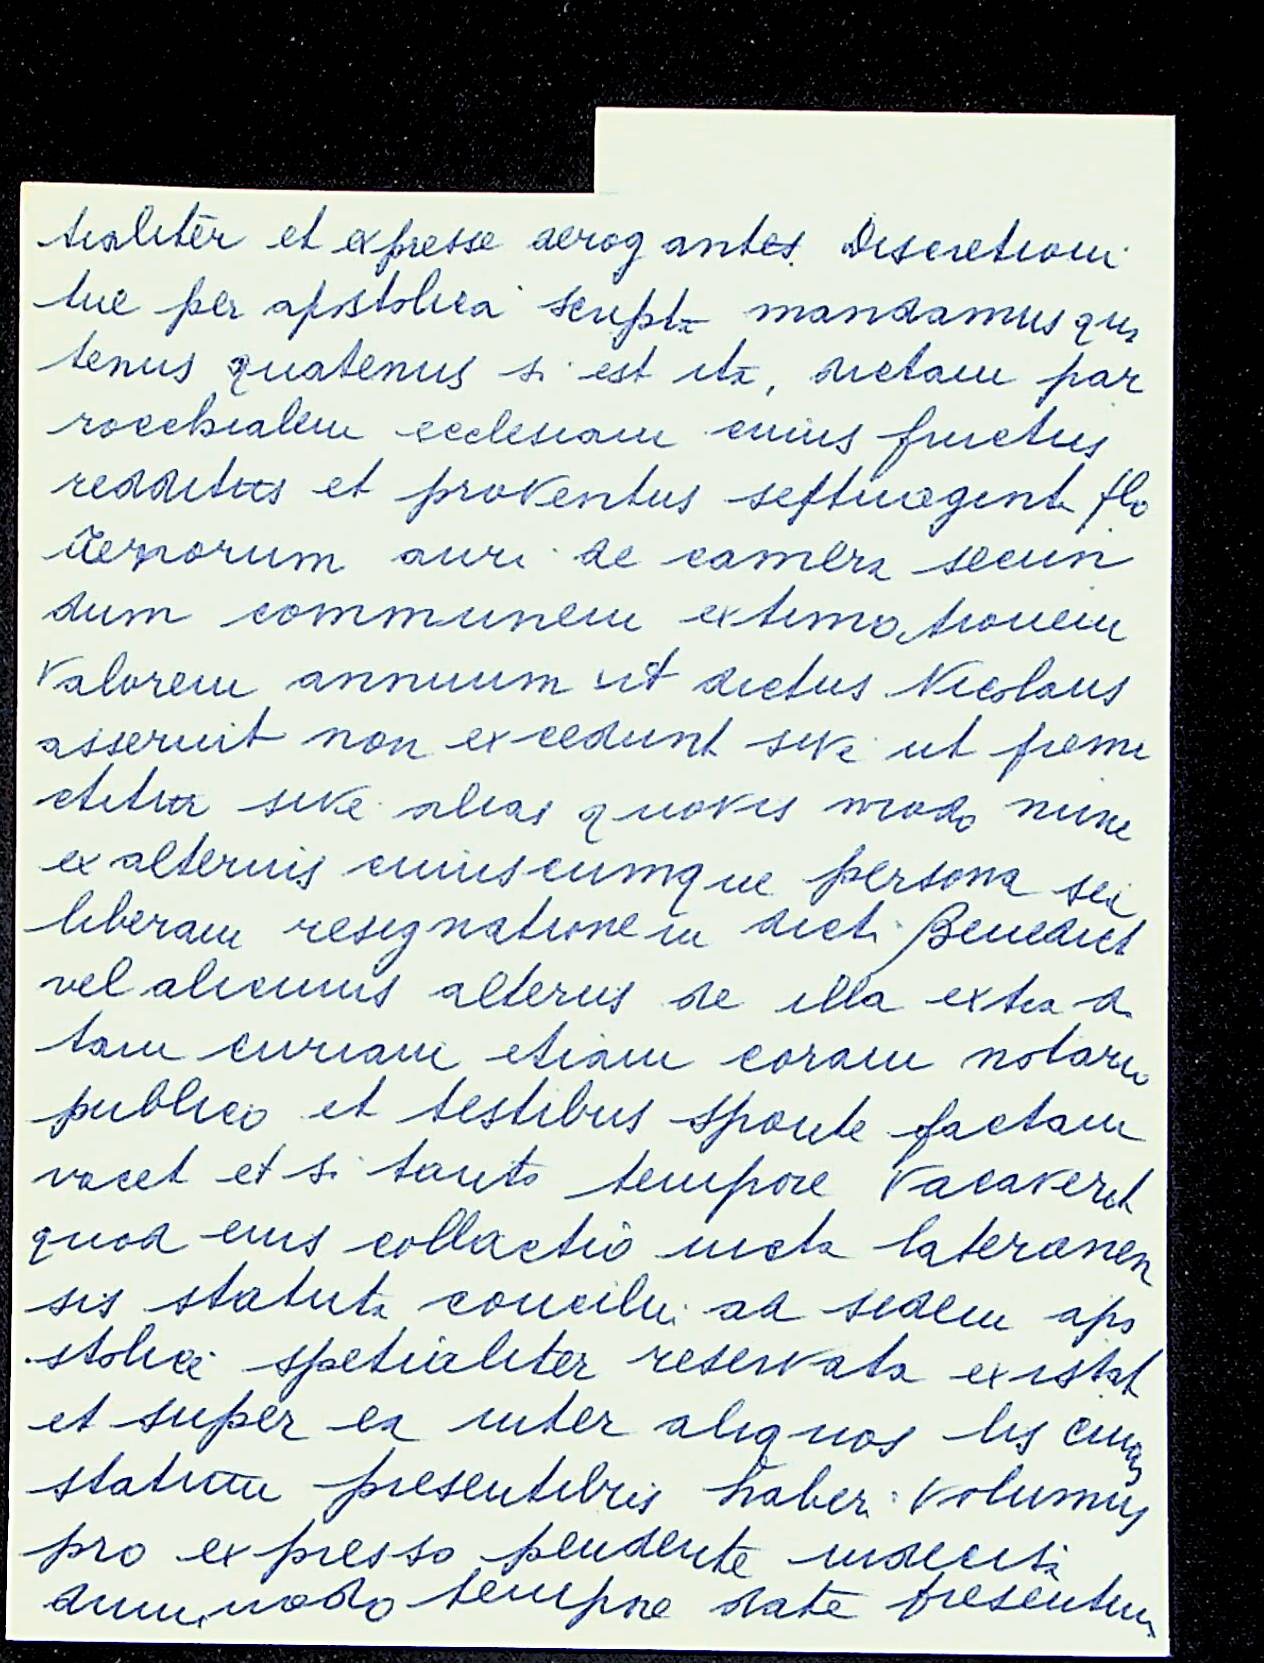 tialiter et expresse derogantes. Discretioni
tue per apostolica scripta mandamus qua
tenus quatenus si est ita, dictam par
rocchialem ecclesiam cuius fructus
redditus et proventus septuaginta flo
renorum auri de camera secun
dum communem extimationem
valorem annuum ut dictus Nicolaus
asseruit non excedunt sive ut premi
ctitur sive alias quovis modo nunc
ex alterius cuiuscumque persona seu
liberam resignationem dicti Benedicti
vel alicuius alterius de illa extra d.
tam curiam etiam coram notario
publico et testibus sponte factam
vacet et si tanto tempore vacaverit
quod eius collactio iucta lateranen
sis statuta concilii ad sedem apo
stolica spetialiter reservata existat
et super ea inter aliquos lis cuius
statum presentibus haberi volumus
pro expresso pendente indecisa
dummodo tempore date presentium